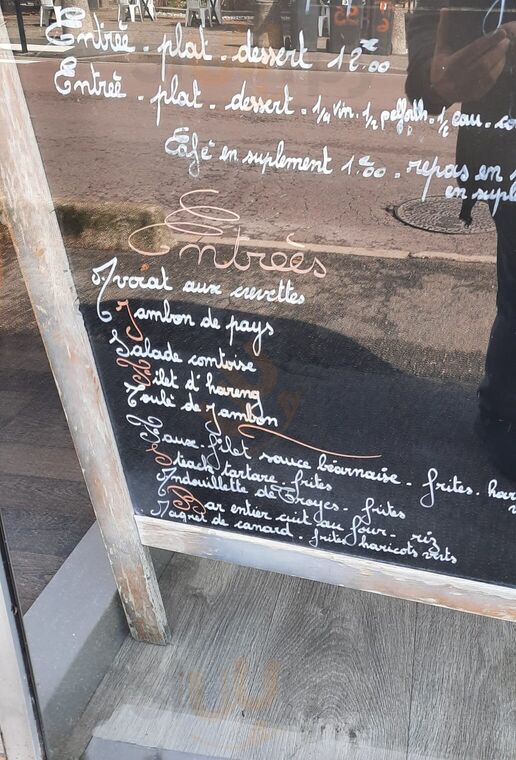 Entrée - plat - dessert 12€00
Entrée - plat - dessert - 1/4 vin - 1/2 pelforth - 1/2 eau -
Café en suplement 1€00 - repas en
en suple
Entreés
Avocat aux crevettes
Jambon de pays
Salade comtoise
Filet d'hareng
Roulé de Jambon
Faux-filet sauce béarnaise - frites - har
Steack tartare - frites
Andouillette de Troyes - frites
Bar entier cuit au four - riz
Magret de canard - frites haricots verts